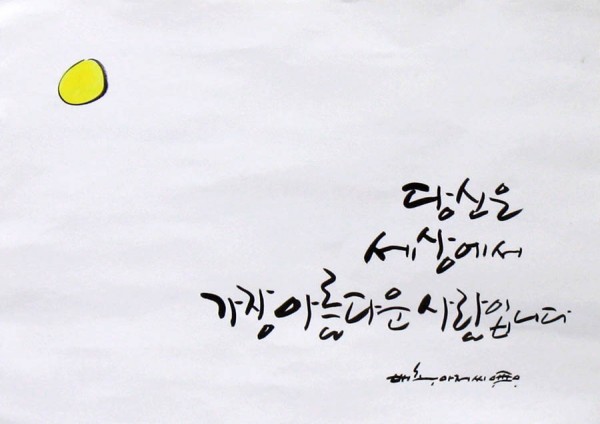 당신은
세상에서
가장 아름다운 사람입니다